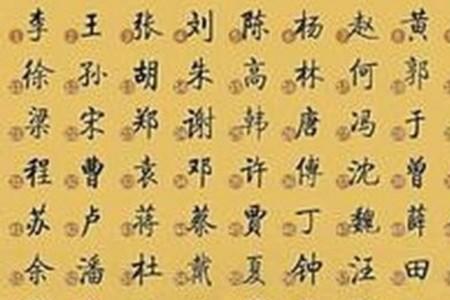 李 王 张 刘 陈 杨 赵 黄
徐 孙 胡 朱 高 林 何 郭
梁 宋 郑 谢 韩 唐 冯 于
程 曹 袁 邓 许 傅 沈 曾
苏 卢 蒋 蔡 贾 丁 魏 薛
余 潘 杜 戴 夏 钟 汪 田